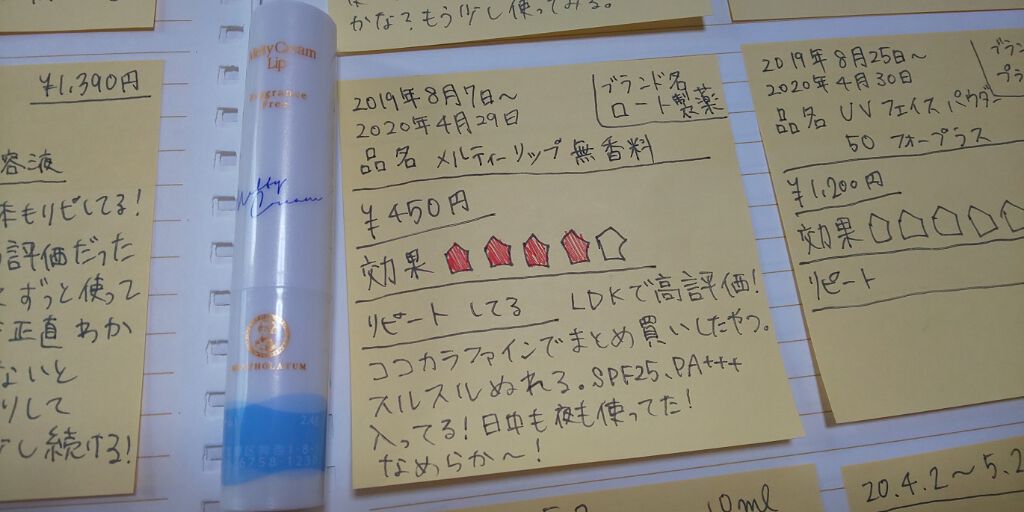 かな?もう少し使ってみる。
¥1,390円
容液
本もリピしてる!
評価だった
ずっと使って
正直わか
ないと
りして
少し続ける!
Melty Cream
Lip
Fragrance
Free
Melty
Cream
MENTHOLATUM
2019年8月7日~
2020年4月29日
ブランド名
ロート製薬
品名 メルティーリップ無香料
¥450円
効果
リピート してる LDKで高評価!
ココカラファインでまとめ買いしたやつ。
スルスルぬれる。SPF25、PA+++
入ってる!日中も夜も使ってた!
なめらか~!
2019年8月25日~
2020年4月30日
ブラン
品名 UVフェイスパウダー
50 フォープラス
¥1,200円
効果
リピート
10ml
20.4.2~5.2